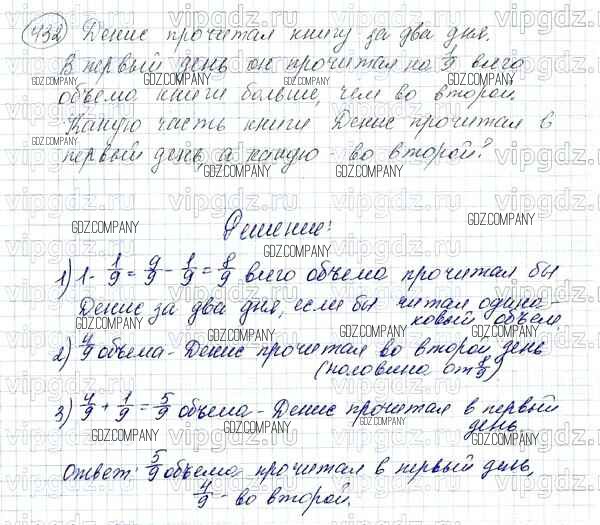 432 Денис прочитал книгу за два дня.
В первый день он прочитал на 1/9 всего
объёма книги больше, чем во второй.
Какую часть книги Денис прочитал в
первый день, а какую - во второй?
Решение:
1) 1 - 1/9 = 9/9 - 1/9 = 8/9 всего объема прочитал бы
Денис за два дня, если бы читал одина-
ковый объем
2) 4/9 объема - Денис прочитал во второй день
(половина от 8/9)
3) 4/9 + 1/9 = 5/9 объема - Денис прочитал в первый
день.
ответ: 5/9 объема прочитал в первый день,
4/9 - во второй.